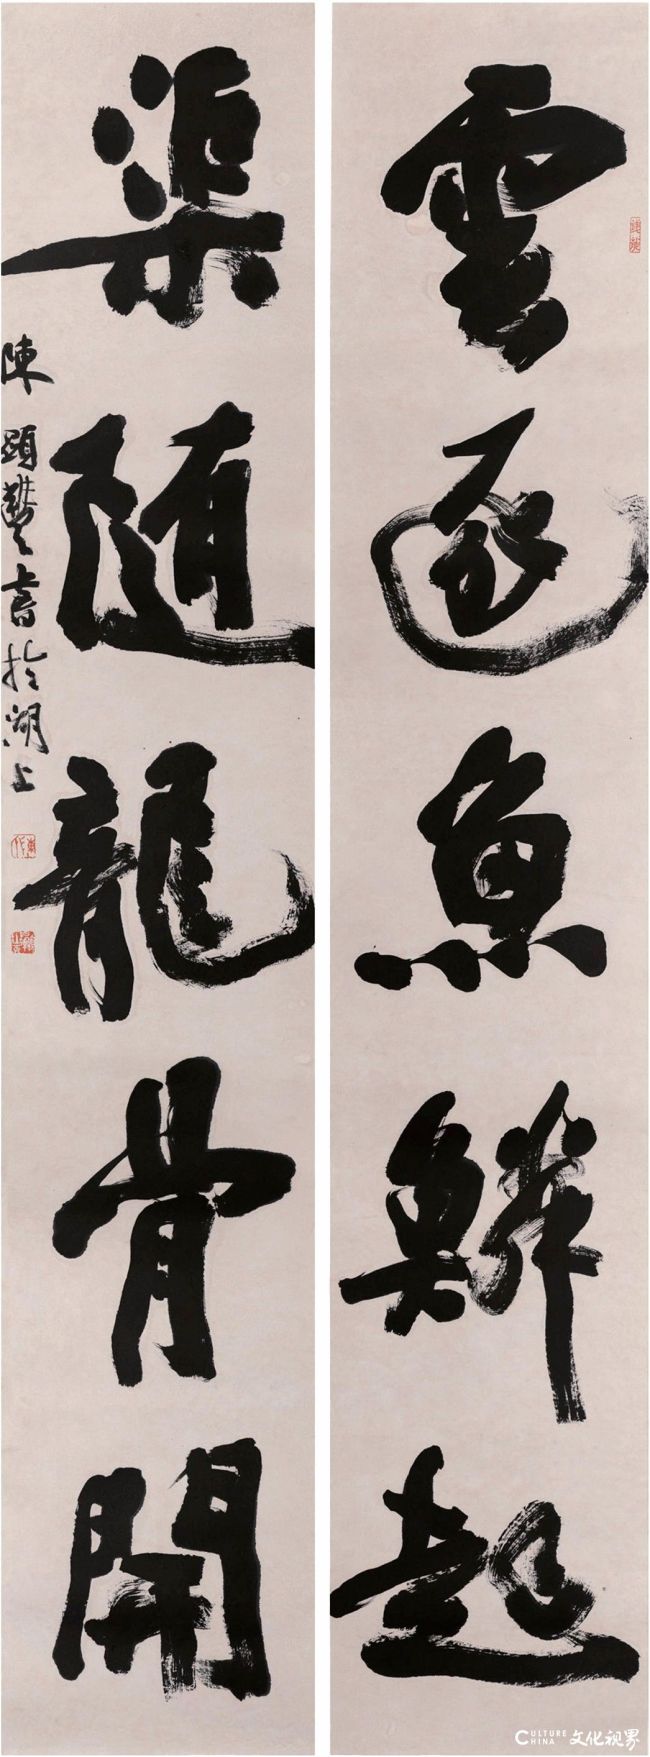 雲逐魚鱗起
渠随龍骨開
陳顕艷書於湖上
CULTURE CHINA 文化视界